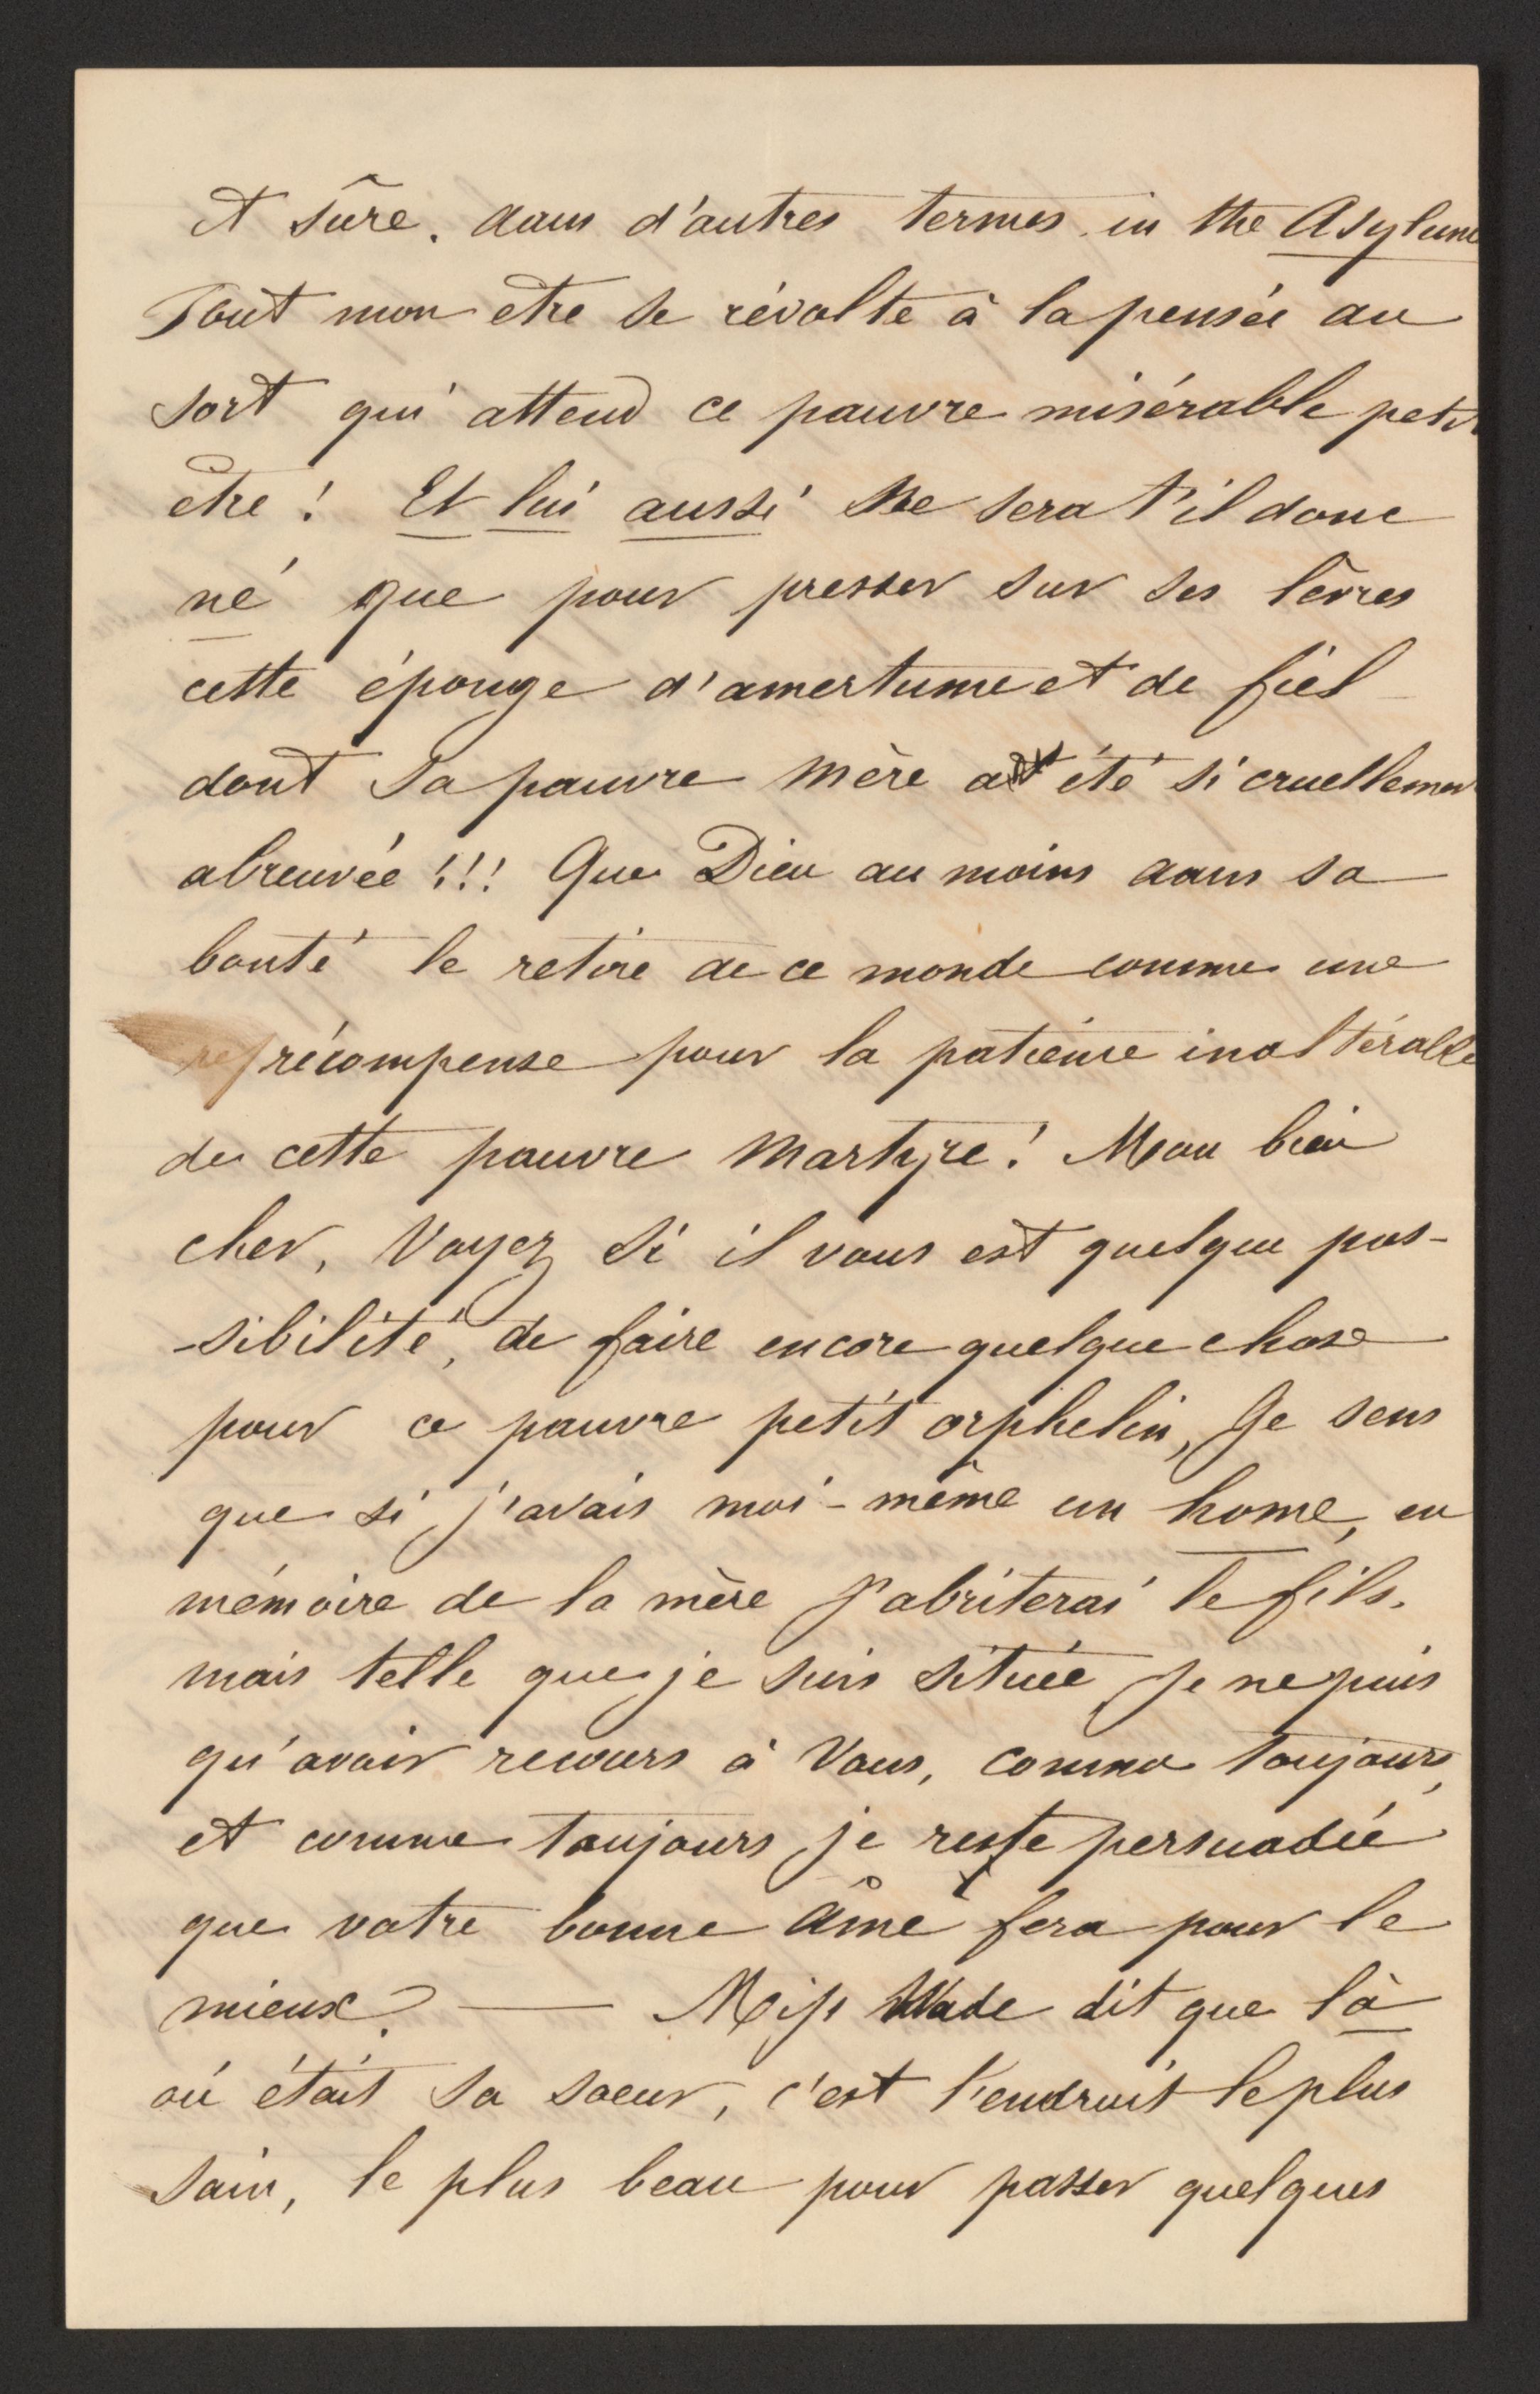 et sûre. dans d'autres termes in the Asylum
Tout mon etre se révolte à la pensée au
sort qui attend ce pauvre misérable petit
etre ! Et lui aussi Ne sera t'il donc
né que pour presser sur ses lêvres
cette éponge d'amertume et de fiel
dont sa pauvre Mère a été si cruellemen
abreuvée !!! Que Dieu au moins dans sa
bonté le retire de ce monde comme une
récompense pour la patience inaltérable
de cette pauvre Martyre ! Mon bien
cher, Voyez si il vous est quelque pos-
-sibilité, de faire encore quelque chose
pour ce pauvre petit orphelin, Je sens
que si j'avais moi-même un home, en
mémoire de la mère J'abriterai le fils.
mais telle que je suis située Je ne puis
qu'avoir recours à Vous, comme toujours,
et comme toujours je reste persuadée
que votre bonne âme fera pour le
mieux. — Miss Wade dit que là
où était sa soeur, c'est l'endroit le plus
sain, le plus beau pour passer quelques